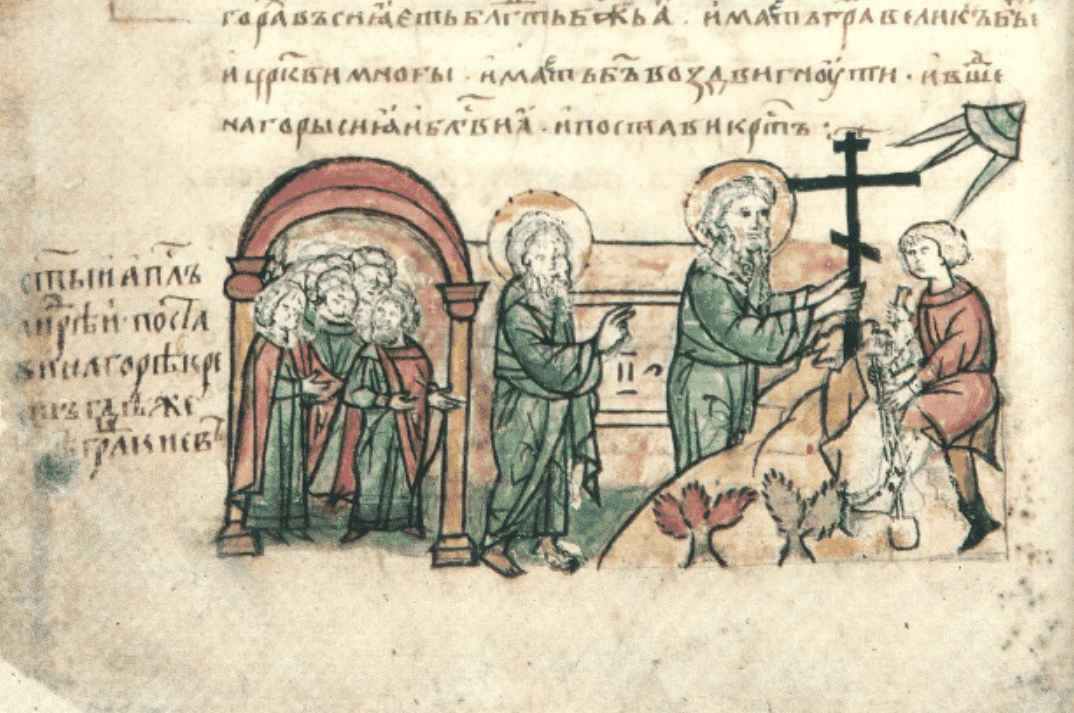 гора въсиꙗеть бл҃гть б҃жьꙗ . имать граⷣ великъ бы
и цр҃кви многы . имать б҃ъ воздвигноути . и въшеⷣ
на горы сиꙗ и бл҃ви ꙗ . и постави кр҃тъ :
ст҃ыи ап҃лъ
анⷣрѣи поста
ви на горѣ кре
стъ гдѣ же
нн҃ѣ граⷣ киевъ